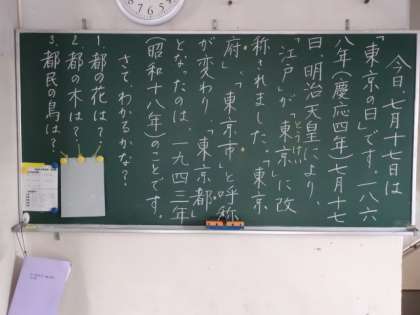 今日、七月十七日は
「東京の日」です。一八六
八年（慶応四年）七月十七
日、明治天皇により、
「江戸」が「東京」に改
とうけい
称されました。「東京
府」、「東京市」と呼称
が変わり、「東京都」
となったのは、一九四三年
（昭和十八年）のことです。
さて、わかるかな？
1. 都の花は？
2. 都の木は？
3. 都民の鳥は？